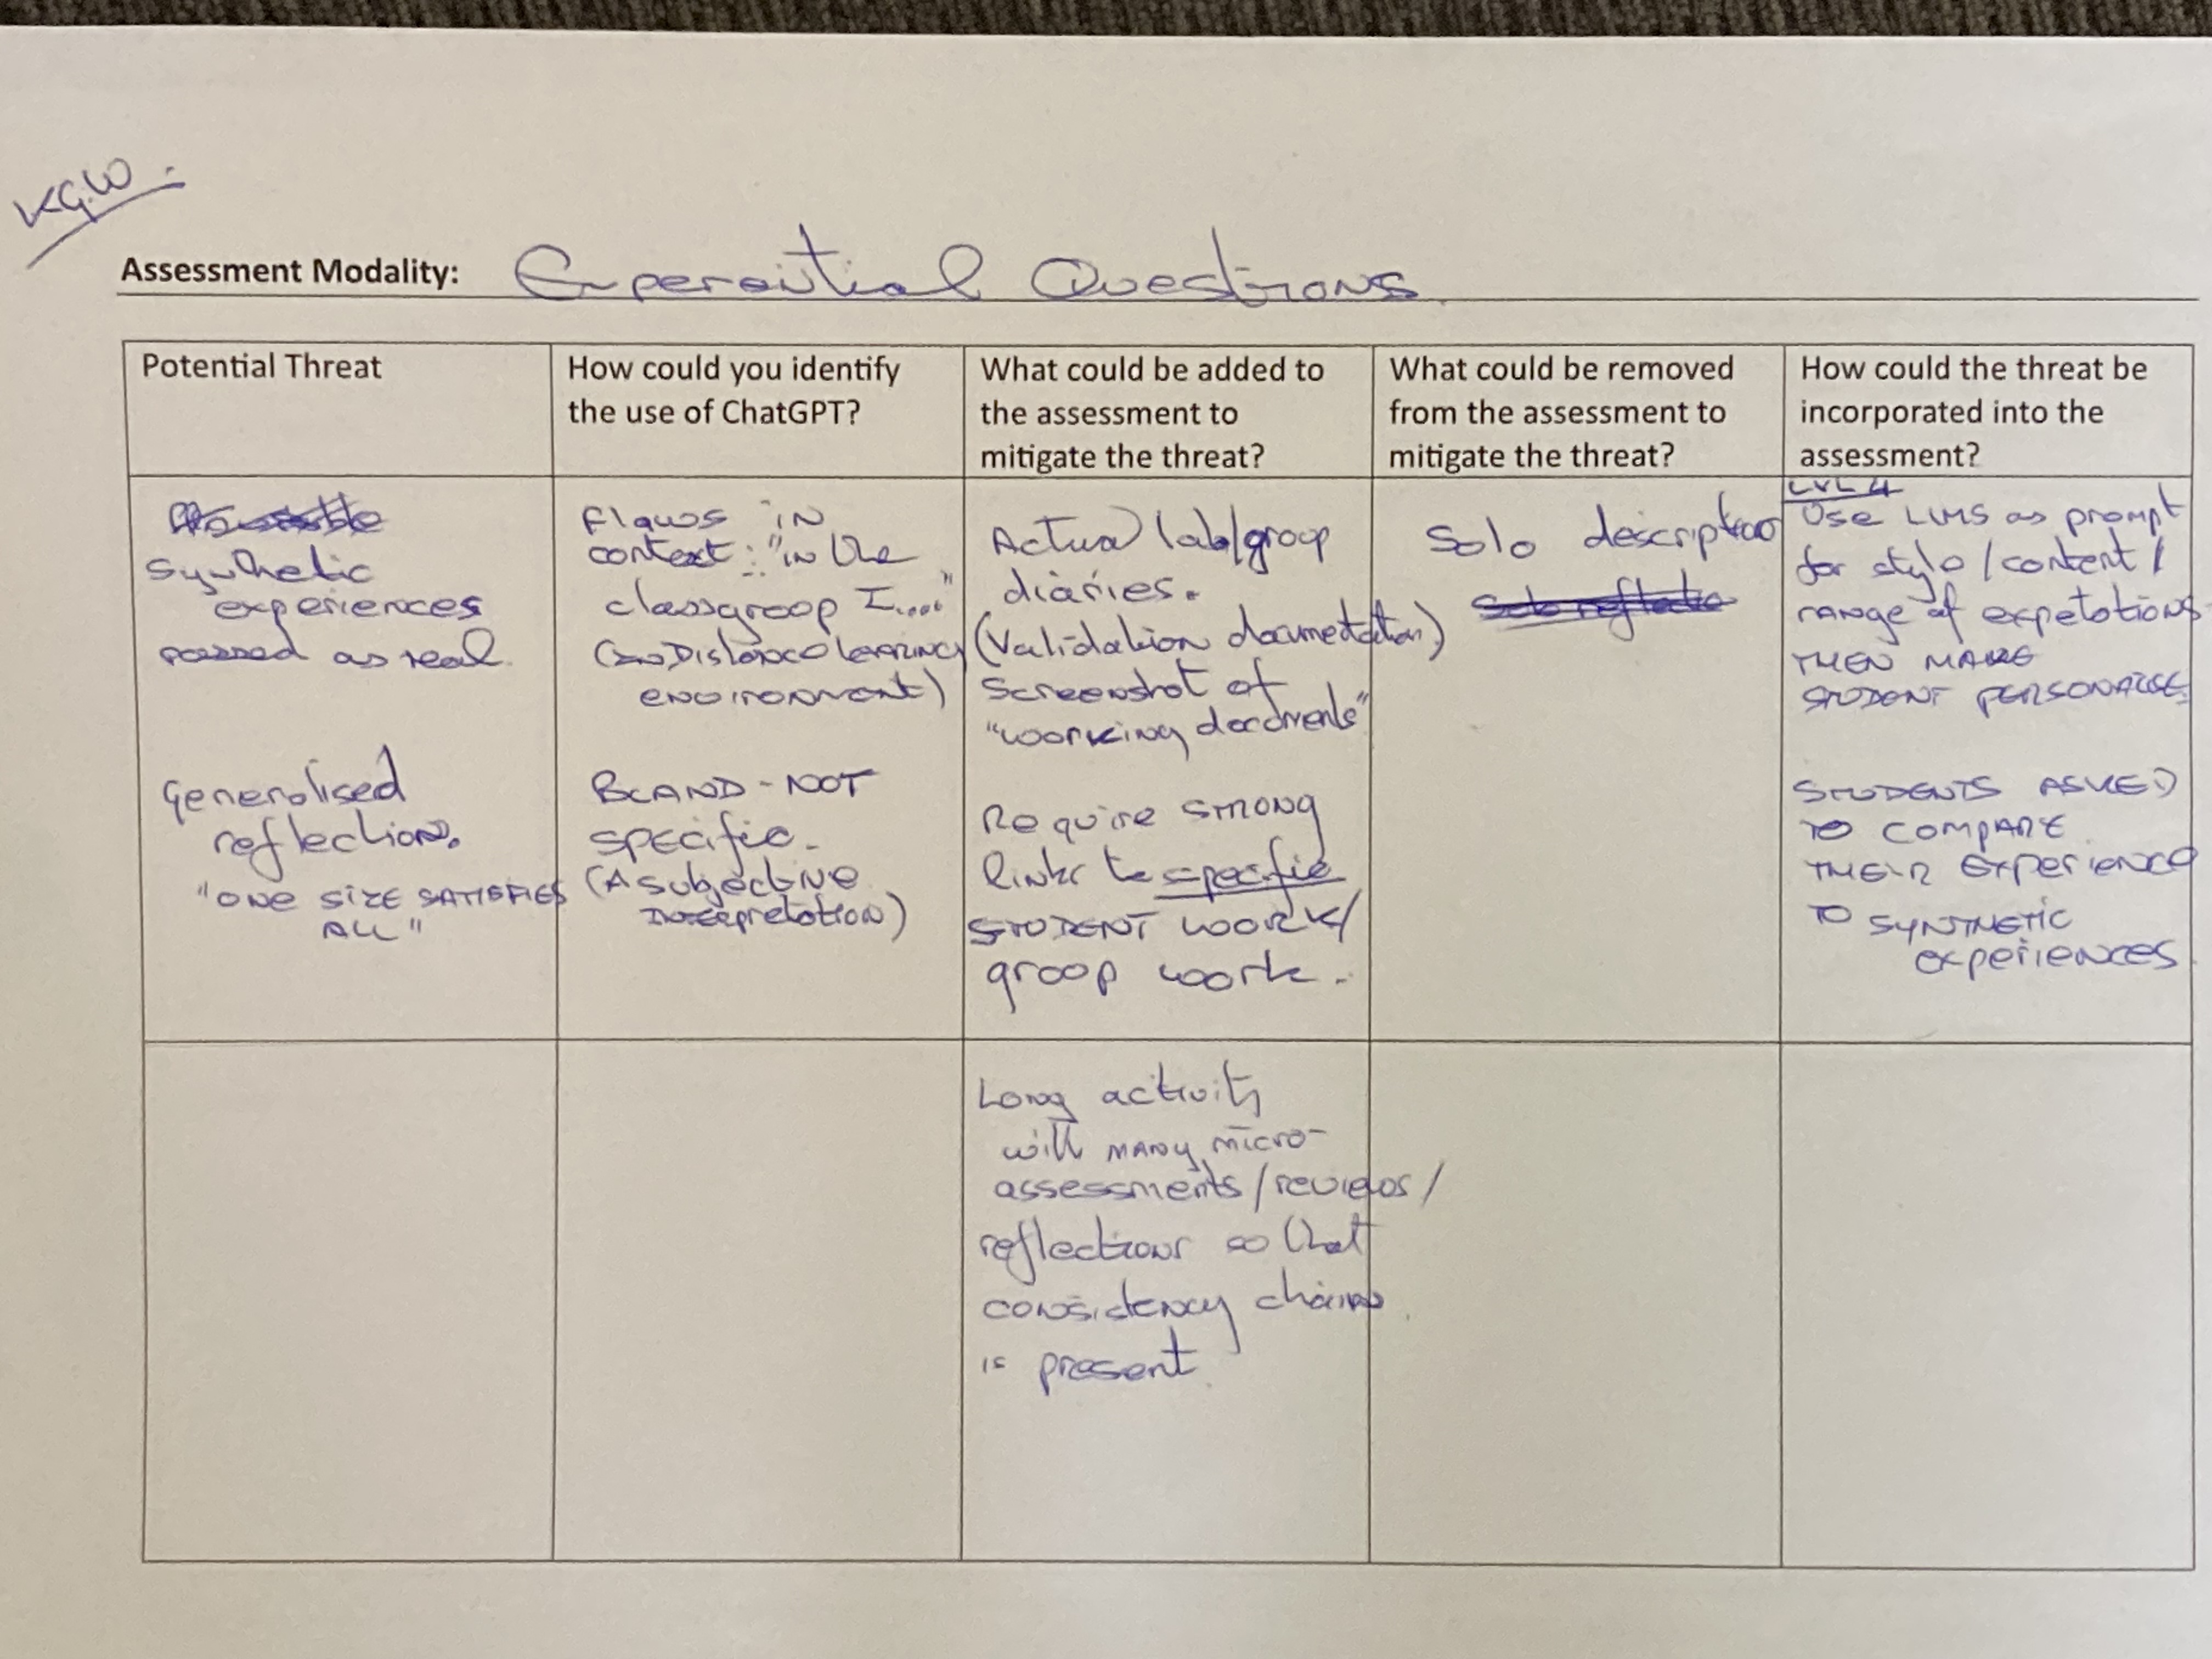 KGW.
Assessment Modality: Experiential Questions.
Potential Threat
How could you identify
the use of ChatGPT?
What could be added to
the assessment to
mitigate the threat?
What could be removed
from the assessment to
mitigate the threat?
How could the threat be
incorporated into the
assessment?
Synthetic
experiences
passed as real.
Generalised
reflection.
"ONE SIZE SATISFIES
ALL"
Flaws in
context: "in the
classgroop I...."
(in Distance learning
environment)
BLAND - NOT
SPECIFIC.
(A subjective
interpretation)
Actual lab/group
diaries.
(Validation documentation)
Screenshot of
"working documents"
Require STRONG
links to specific
STUDENT WORK/
groop work.
Solo description
LVL 4
Use LLMS as prompt
for style/content/
range of expetations
THEN MAKE
STUDENT PERSONALISE
STUDENTS ASKED
TO COMPARE
THEIR EXPERIENCE
TO SYNTHETIC
experiences.
Long activity
will MANY micro-
assessments/reviews/
reflections so that
consistency chains
is present.